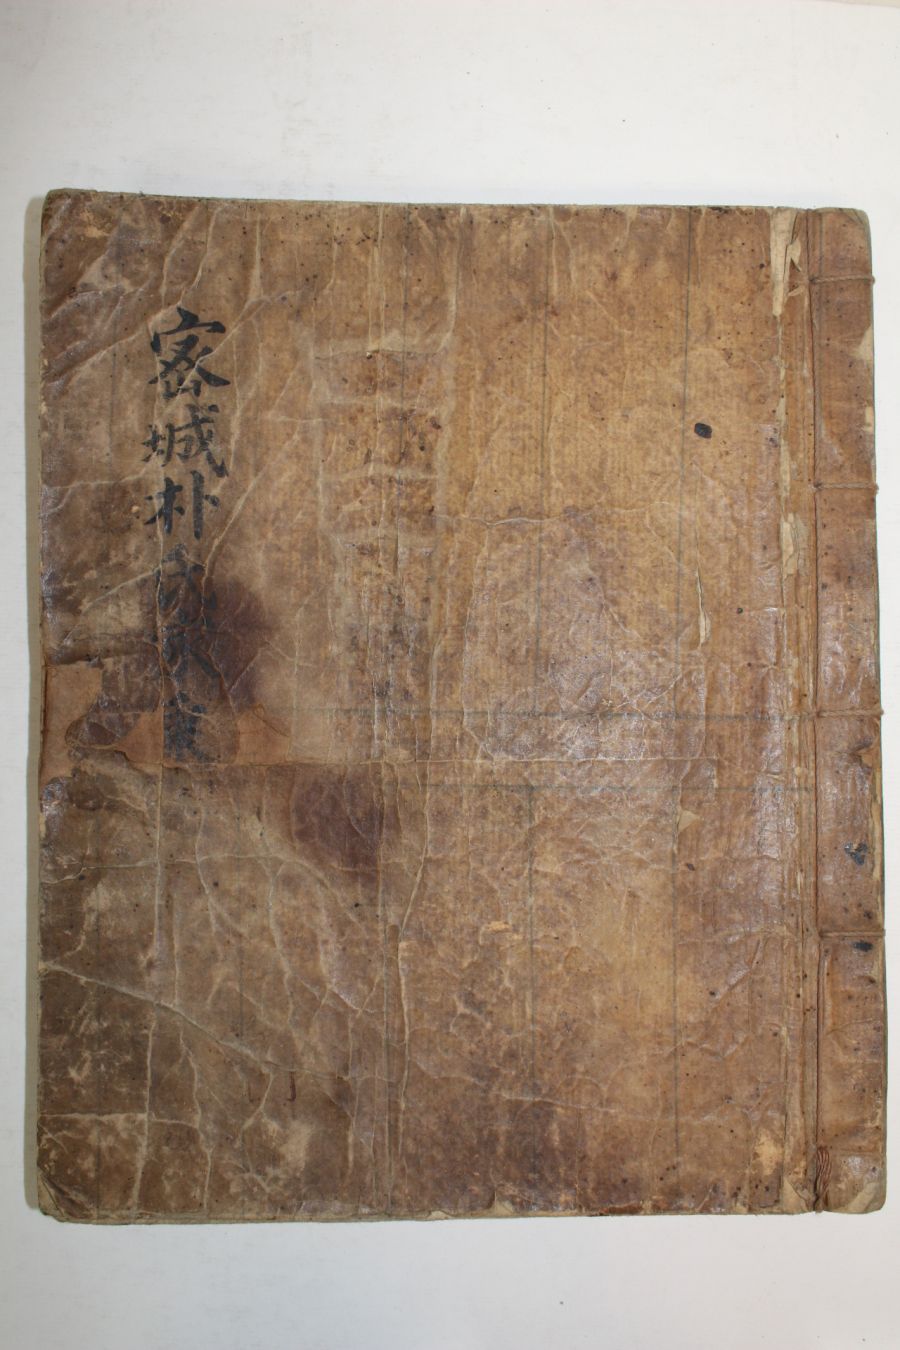 密城朴氏家乗